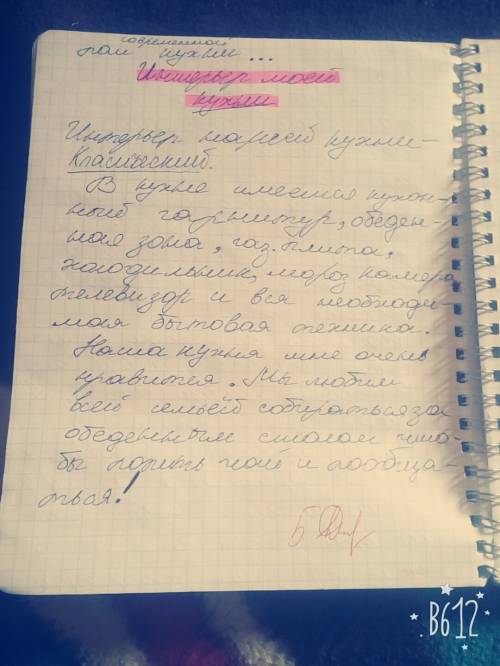 современной
пом кухни ...
Интерьер моей
кухни
Интерьер нашей кухни -
Классический.
В кухне имеется кухон-
ный гарнитур, обеден-
ная зона, газ. плита,
холодильник, мороз камера
телевизор и вся необходи-
мая бытовая техника.
Наша кухня мне очень
нравится. Мы любим
всей семьёй собираться за
обеденным столом что-
бы попить чай и пообща-
ться!
5
B612